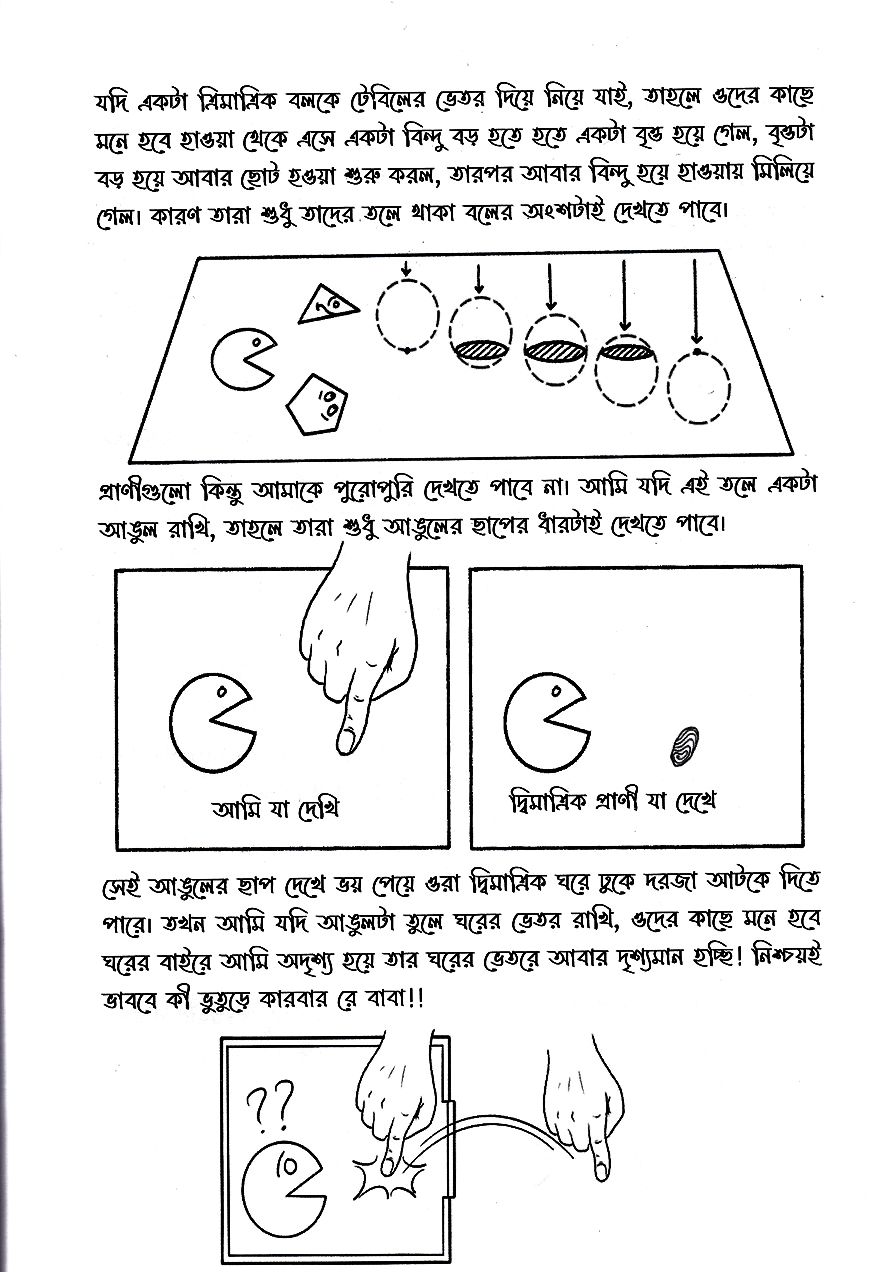 যদি একটা ত্রিমাত্রিক বলকে টেবিলের ভেতর দিয়ে নিয়ে যাই, তাহলে ওদের কাছে
মনে হবে হাওয়া থেকে এসে একটা বিন্দু বড় হতে হতে একটা বৃত্ত হয়ে গেল, বৃত্তটা
বড় হয়ে আবার ছোট হওয়া শুরু করল, তারপর আবার বিন্দু হয়ে হাওয়ায় মিলিয়ে
গেল। কারণ তারা শুধু তাদের তলে থাকা বলের অংশটাই দেখতে পাবে।
প্রাণীগুলো কিন্তু আমাকে পুরোপুরি দেখতে পাবে না। আমি যদি এই তলে একটা
আঙুল রাখি, তাহলে তারা শুধু আঙুলের ছাপের ধারটাই দেখতে পাবে।
আমি যা দেখি
দ্বিমাত্রিক প্রাণী যা দেখে
সেই আঙুলের ছাপ দেখে ভয় পেয়ে ওরা দ্বিমাত্রিক ঘরে ঢুকে দরজা আটকে দিতে
পারে। তখন আমি যদি আঙুলটা তুলে ঘরের ভেতর রাখি, ওদের কাছে মনে হবে
ঘরের বাইরে আমি অদৃশ্য হয়ে তার ঘরের ভেতরে আবার দৃশ্যমান হচ্ছি! নিশ্চয়ই
ভাববে কী ভুতুড়ে কারবার রে বাবা!!
??